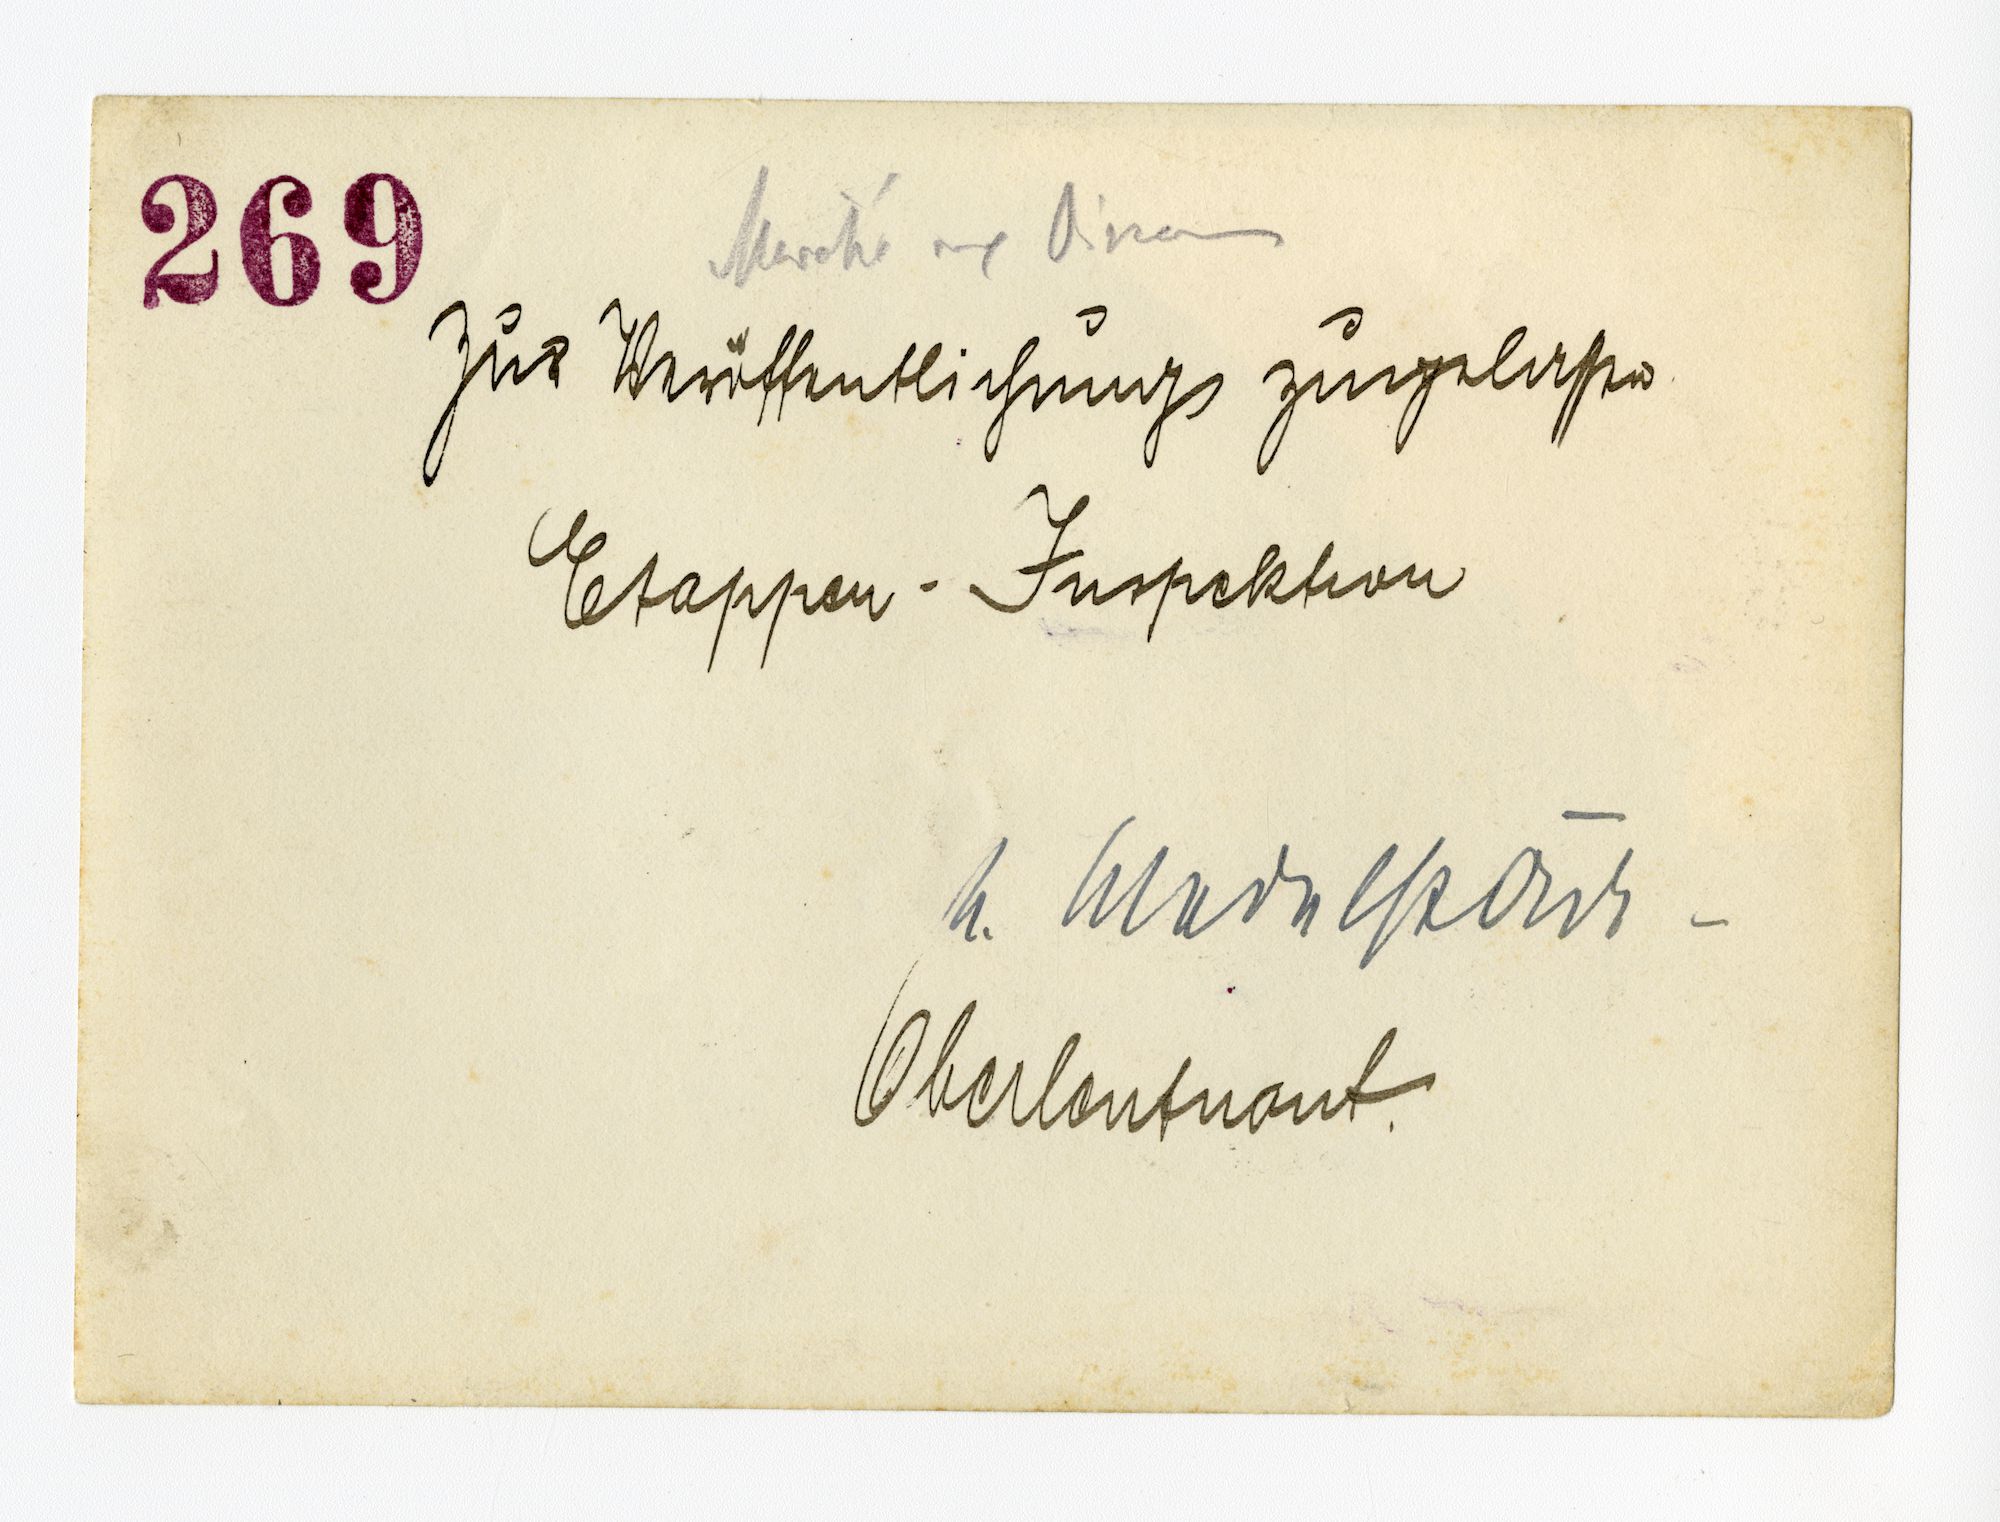 269
Marché aux
Zur Veröffentlichung zugelassen
Etappen-Inspektion
v.
Oberleutnant.